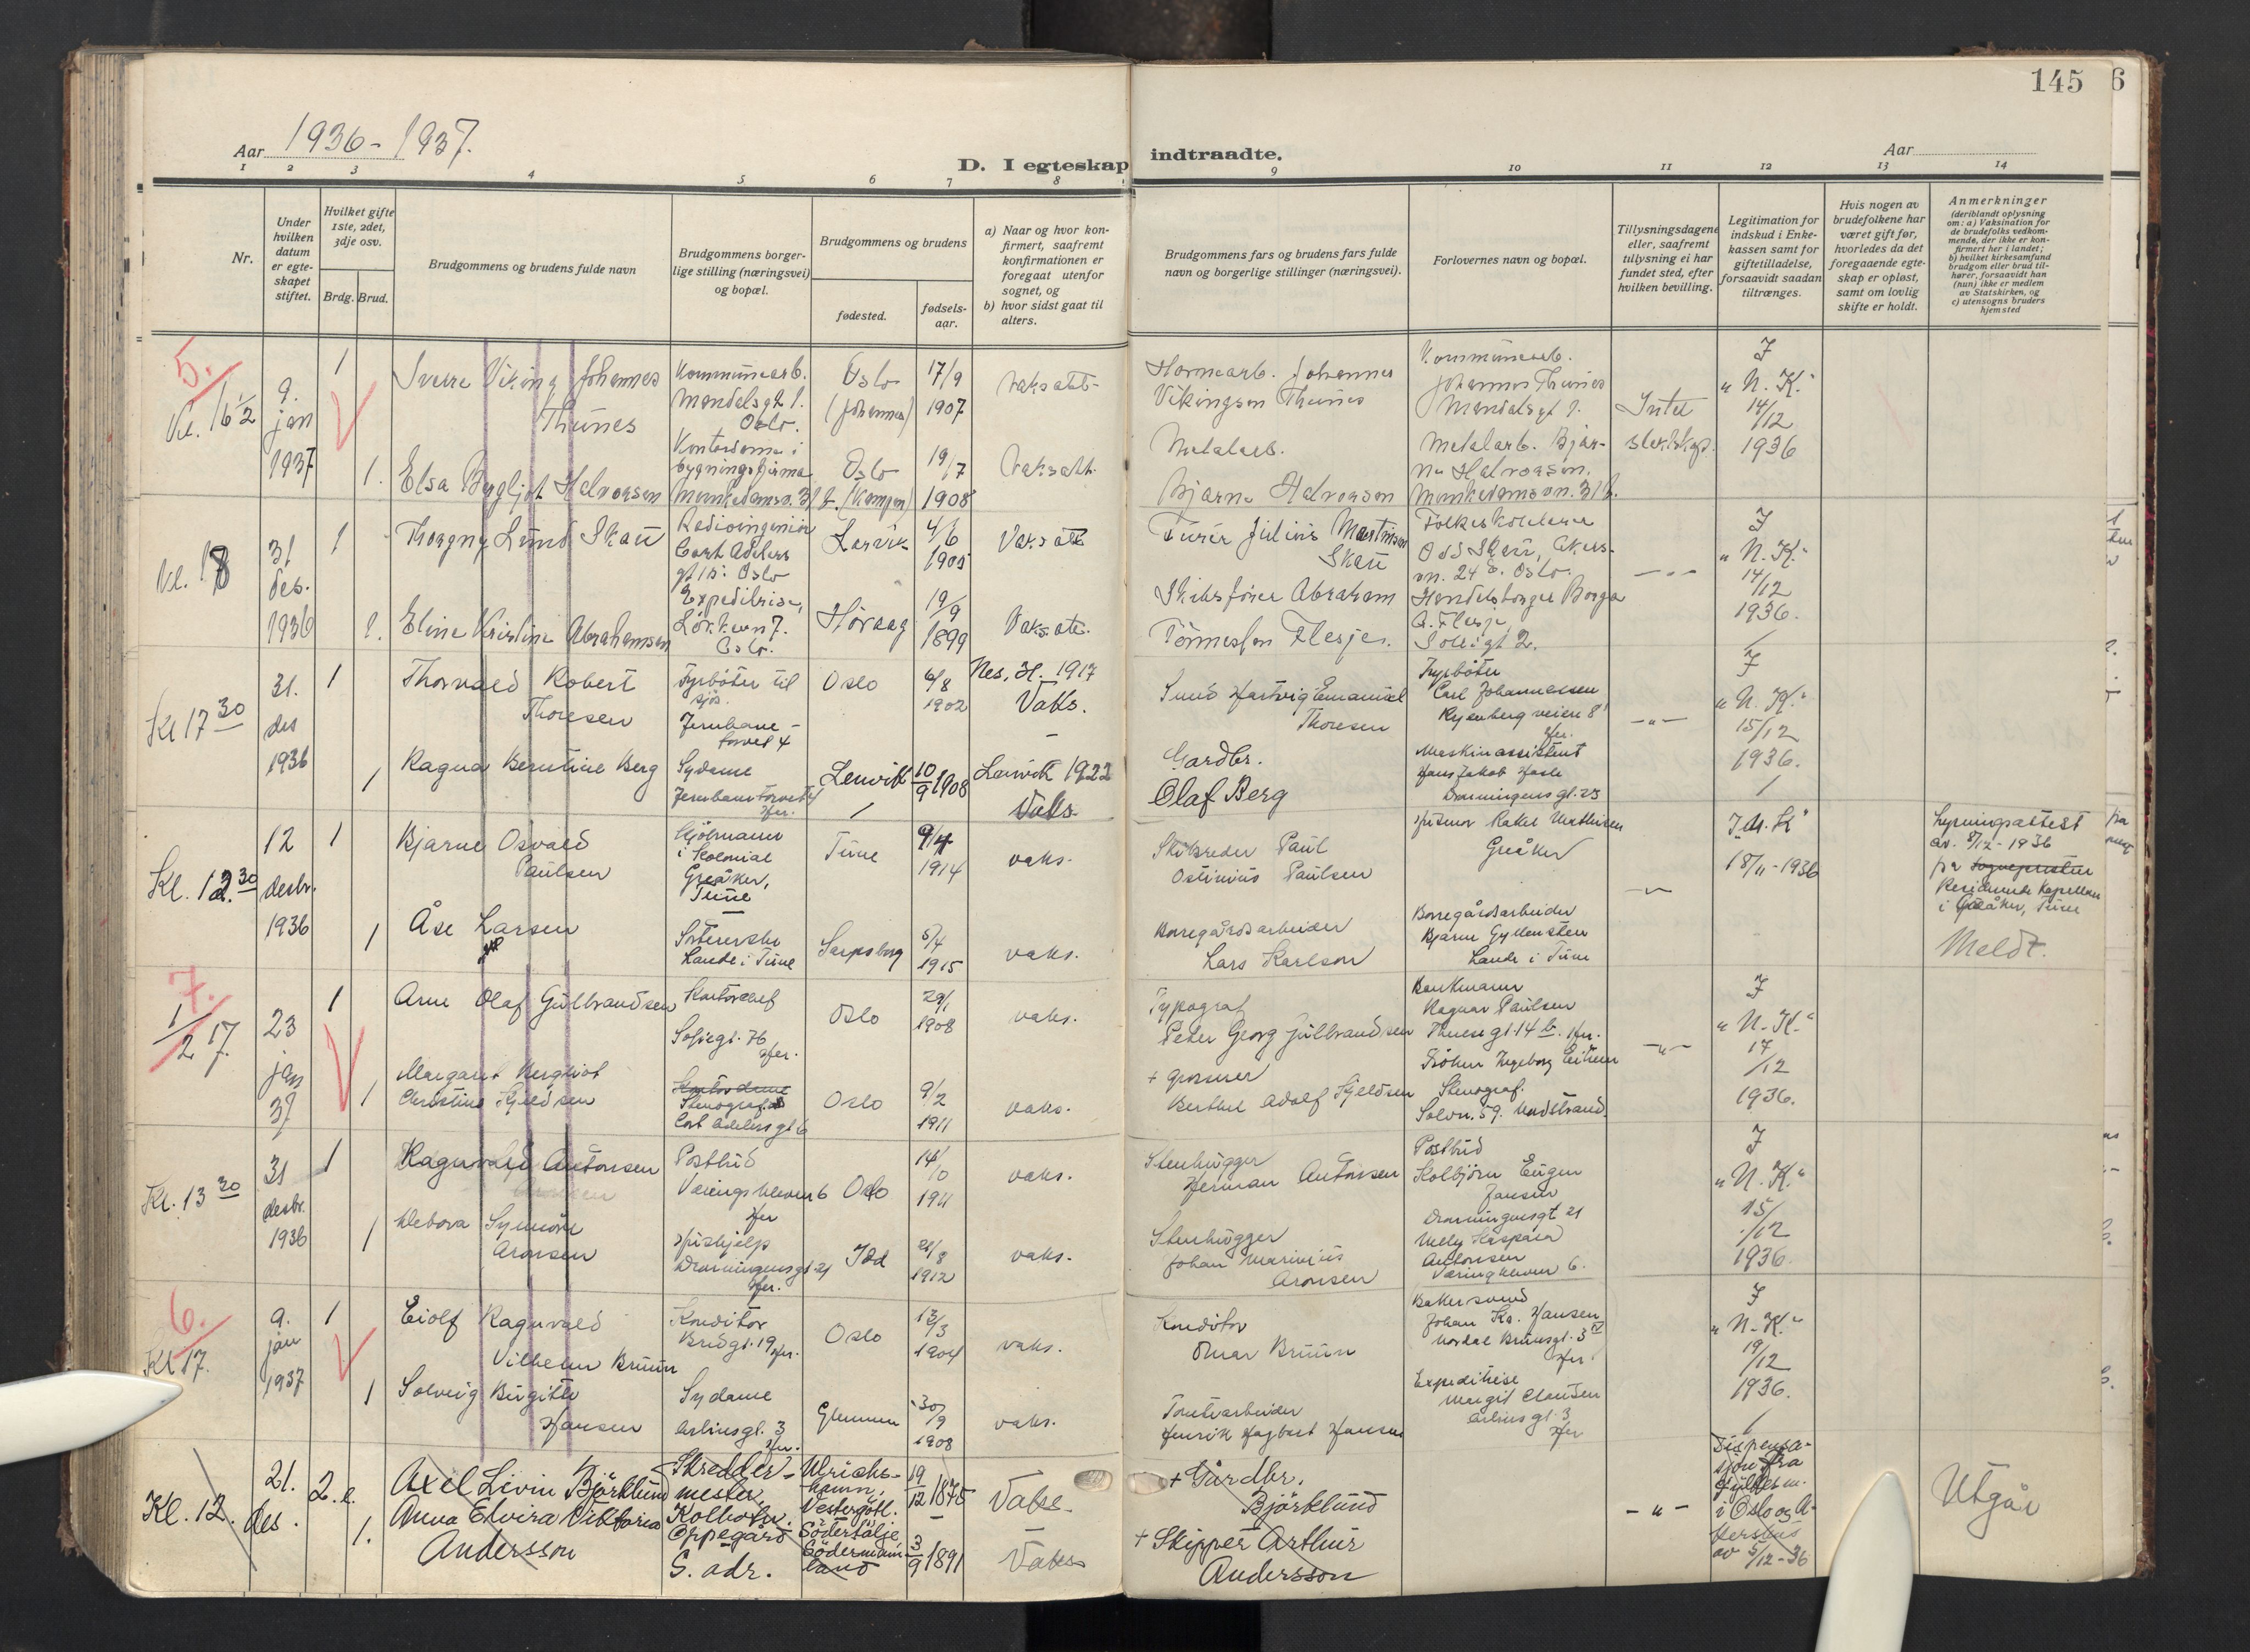 145
6
Aar 1936 - 1937.
D. I egteskap indtraadte.
Aar
1 2 3 4 5 6 7 8 9 10 11 12 13 14
Nr.
Under hvilken datum er egteskapet stiftet.
Hvilket gifte 1ste, 2det, 3dje osv.
Brdg. Brud.
Brudgommens og brudens fulde navn
Brudgommens borgerlige stilling (næringsvei) og bopæl.
Brudgommens og brudens
fødested.
fødselsaar.
a) Naar og hvor konfirmert, saafremt konfirmationen er foregaat utenfor sognet, og
b) hvor sidst gaat til alters.
Brudgommens fars og brudens fars fulde navn og borgerlige stillinger (næringsvei).
Forlovernes navn og bopæl.
Tillysningsdagene eller, saafremt tillysning ei har fundet sted, efter hvilken bevilling.
Legitimation for indskud i Enkekassen samt for giftetilladelse, forsaavidt saadan tiltrænges.
Hvis nogen av brudefolkene har været gift før, hvorledes da det foregaaende egteskap er opløst, samt om lovlig skifte er holdt.
Anmerkninger
(deriblandt oplysning om: a) Vaksination for de brudefolks vedkommende, der ikke er konfirmert her i landet;
b) hvilket kirkesamfund brudgom eller brud tilhører, forsaavidt han (hun) ikke er medlem av Statskirken, og
c) utensogns bruders hjemsted
5.
Kl. 16 1/2
9. jan 1937
1
Sverre Viking Johannes
Thunes
Kommunearb.
Mandalsgt 1.
Oslo.
Oslo
(Johannes)
17/9
1907
Johannes
Vikingson Thunes
Kommunearb.
Johannes Thunes
Mandalsgt 1.
J
"N. K."
14/12
1936
1.
Elsa Bergljot Halvorsen
Kontordame i
bygningsfirma
Munkedamsv. 31 b.
Oslo
(Kampen)
19/7
1908
Metalarb.
Bjarne Halvorsen
Metalarb. Bjar-
ne Halvorsen.
Munkedamsvn. 31 b.
Kl. 18
31 des. 1936
1
Thorgny Lund Skau
Radioingeniör
Cort Adelers
gt 15. Oslo
Larvik
4/6
1905
Vaksatt
Julius Martinius
Skau
Odd Skau, Akers-
vn. 24 E. Oslo.
J
"N. K."
14/12
1936.
1.
Eline Kristine Abrahamsen
Expeditrise,
Oslo.
19/9
1899
Abraham
Tönnesen Flesje.
A. Flesje
Kl 17 30
31. des 1936
1
Thorvald Robert
Thoresen
Fyrböter til
sjös.
Jernbane-
torvet 4
Oslo
6/8
1902
Nes, H. 1917
Vaks.
Smed Hartvig Emanuel
Thoresen
Fyrböter
Carl Johannessen
Ryenbergveien 8
her.
J
"N. K."
15/12
1936.
1
Ragna Berntine Berg
Sydame
Jernbanetorvet 4
her.
Lenvik
10/9 1908
Lenvik 1922
Vaks.
Gardbr.
Olaf Berg
Maskinassistent
Hans Jakob Hasle
Dronningens gt. 23
Kl. 12.30
12 desbr. 1936
1
Bjarne Osvald
Paulsen
i Kolonial
Greåker,
Tune
Tune
9/4
1914
vaks.
Skibsreder Paul
Ostinius Paulsen
Husmor Rakel Mathisen
Greåker
J "N. K"
18/11 - 1936
Lysningsattest
av 5/12 - 1936
fra Sogneprsten
Residerende Kapellan
i Greåker, Tune
Meldt.
1
Åse Larsen
Lande i Tune
Sarpsborg
5/4
1915
vaks.
Borregårdsarbeider
Lars Karlson
Borregårdsarbeider
Bjarne Gyllensten
Lande i Tune
7.
1/2 17.
23 jan 37
1
Arne Olaf Gulbrandsen
Kontorchef
Sofiegt. 76
her.
Oslo
29/1
1908
vaks.
Typograf
Peter Georg Gulbrandsen
Bankmann
Ragnar Paulsen
Thereses gt. 14 b. Her.
J
"N. K."
17/12
1936.
1
Margaret Bergliot
Christine Kjeldsen
Kontordame
Stenograf
Cort Adelers gt 6
Oslo
9/2
1911
vaks.
+ Grosserer
Berthel Adolf Kjeldsen
Fröken Ingeborg
Stenograf.
Solvn. 59. Nordstrand
Kl. 13 30
31 desbr. 1936
1
Ragnvald Antonsen
Postbud
Væringskleven 6
her
Oslo
14/10
1911
vaks.
Stenhugger
Herman Antonsen
Postbud
Kolbjörn Eugen
Jansen
Dronningensgt 21
J
"N. K."
15/12
1936
1
Debora Synnöve
Aronsen
Hushjelp
Dronningensgt 21
her.
Idd
21/8
1912
vaks.
Stenhugger
Johan Marinius
Aronsen
Nelly Kaspara
Antonsen
Væringkleven 6.
6.
Kl 17.
9. jan 1937
1
Eiolf Ragnvald
Vilhelm Bruun
Konditor
Brugt. 19 her.
Oslo
13/3
1904
vaks.
Konditor
Omar Bruun
Bakersvend
Johan Kr. Hansen
Nordal Brunsgt. 3 IV
her
J
"N. K."
19/12
1936.
1
Solveig Birgitte
Hansen
Sydame
her.
Glemmen
30/9
1908
vaks.
Tomtearbeider
Henrik Hagbart Hansen
Expeditrise
Margit Clausen
her
Kl. 12.
21. des.
2. e.
1.
Axel Livin Björklund
Anna Elvira Viktoria
Andersson
Skredder-
mester,
Kolbotn.
Oppegård
S. adr.
Ulricehamn,
Vestergötl.
Södertälje
Södermanland
19/12 1875
3/9 1891
Vaks.
Vaks
+ Gårdbr.
Björklund
+ Skipper Arthur
Andersson
- " -
Dispensa-
sjon fra
Fylkesm.
i Oslo og A-
kershus
av 5/12 - 36
Utgår